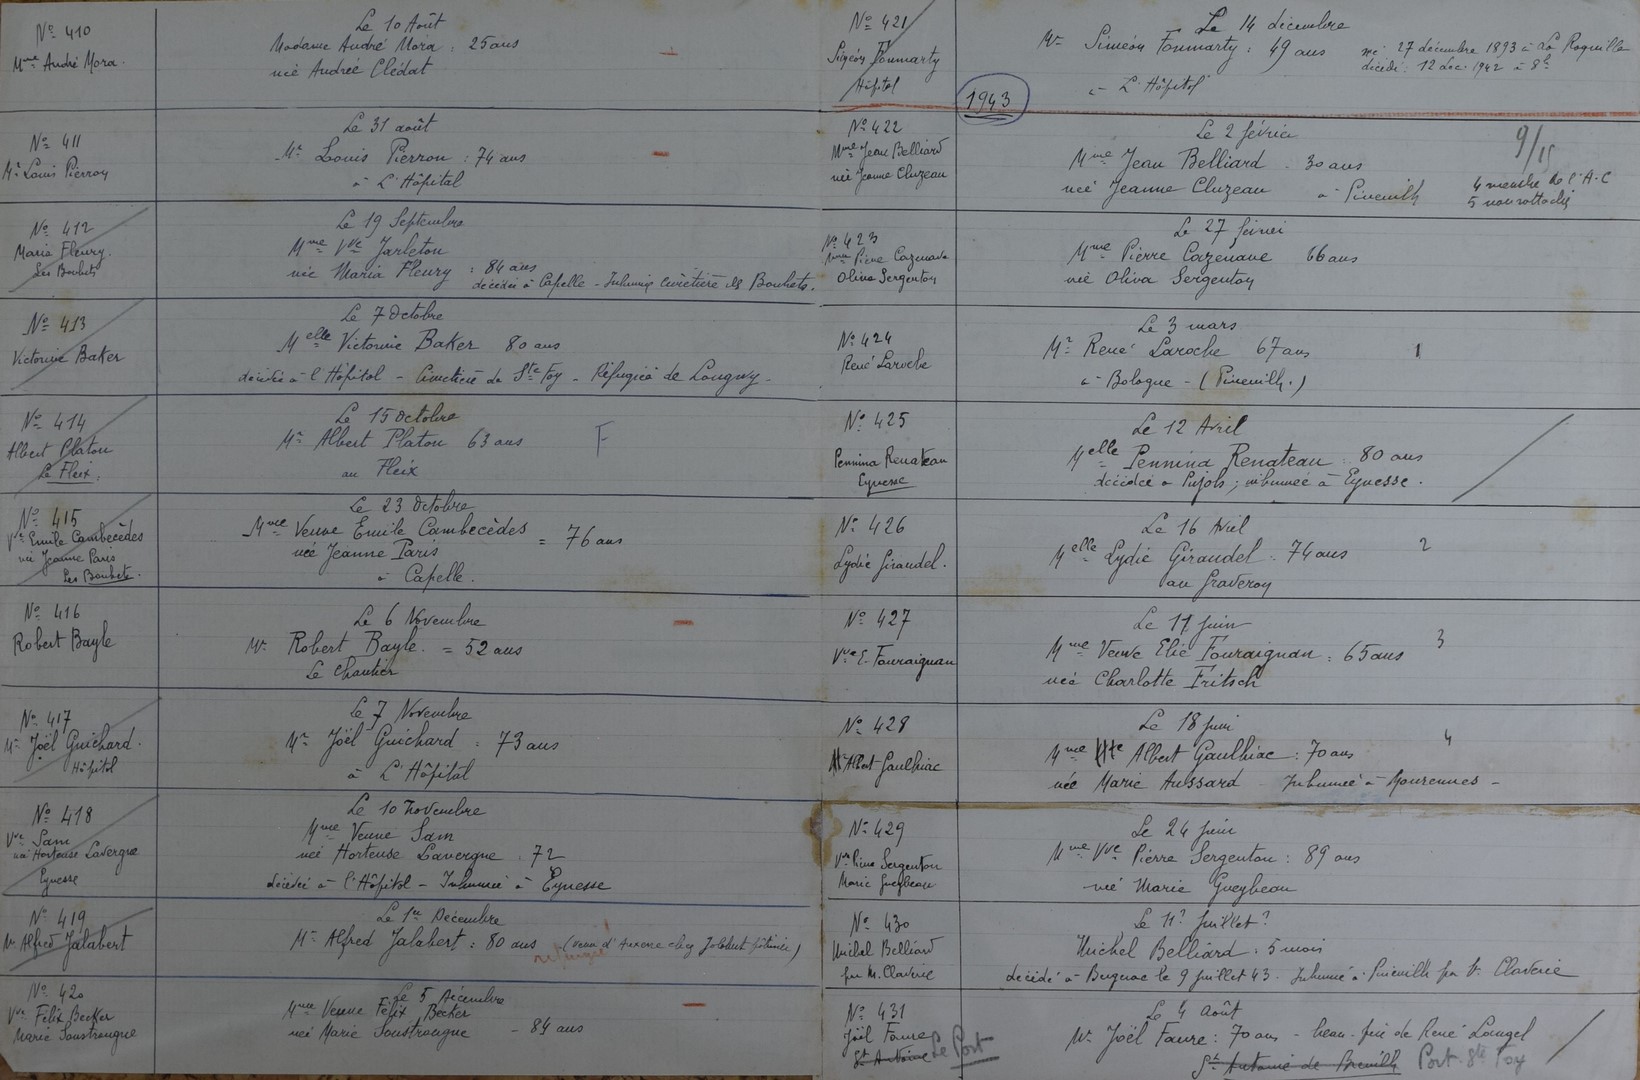 No 410
Mme André Mora.
Le 10 Août
Madame André Mora : 25 ans
née Andrée Clédat
No 411
Mr Louis Pierrou
Le 31 août
Mr Louis Pierrou : 74 ans
à L'Hôpital
No 412
Maria Fleury.
Les Bouhets
Le 19 Septembre
Mme Vve Jarleton
née Maria Fleury : 84 ans
décédée à Capelle - Inhumée cimetière des Bouhets.
No 413
Victorine Baker
Le 7 Octobre
Melle Victorine Baker 80 ans
décédée à l'Hôpital - Cimetière de Ste Foy - Réfugiée de Longwy -
No 414
Albert Platon
Le Fleix.
Le 15 Octobre
Mr Albert Platon 63 ans F
au Fleix
No 415
Vve Emile Cambecèdes
née Jeanne Paris
Les Bouhets.
Le 23 Octobre
Mme Veuve Emile Cambecèdes
née Jeanne Paris = 76 ans
à Capelle.
No 416
Robert Bayle
Le 6 Novembre
Mr Robert Bayle. = 52 ans
Le Chantier
No 417
Mr Joël Guichard.
Hôpital
Le 7 Novembre
Mr Joël Guichard : 73 ans
à L'Hôpital
No 418
Vve Sam
née Hortense Lavergne
Eynesse
Le 10 Novembre
Mme Veuve Sam
née Hortense Lavergne : 72
décédée à l'Hôpital - Inhumée à Eynesse
No 419
Mr Alfred Jalabert
Le 1er Décembre
Mr Alfred Jalabert : 80 ans (venu d'Auxerre chez Jalabert pâtissier)
refugié
No 420
Vve Félix Becker
Marie Soustrougne
Le 5 Décembre
Mme Veuve Félix Becker
née Marie Soustrougne - 84 ans
No 421
Siméon Foumarty
Hôpital
Le 14 décembre
Mr Siméon Foumarty : 49 ans né : 27 décembre 1893 à La Roquille
décédé : 12 Dec. 1942 à 8h
à L'Hôpital
1943
No 422
Mme Jean Belliard
née Jeanne Cluzeau
Le 2 février
Mme Jean Belliard - 30 ans
née Jeanne Cluzeau à Pineuilh
9/15
4 membre de l'A.C
5 non rattachés
No 423
Mme Pierre Cazenave
Oliva Sergenton
Le 27 février
Mme Pierre Cazenave 66 ans
née Oliva Sergenton
No 424
René Laroche
Le 3 mars
Mr René Laroche 67 ans 1
à Bologne - (Pineuilh.)
No 425
Pennina Renateau
Eynesse
Le 12 Avril
Melle Pennina Renateau : 80 ans
décédée à Pujols ; inhumée à Eynesse.
No 426
Lydie Giraudel.
Le 16 Avril
Melle Lydie Giraudel : 74 ans 2
au Graveron
No 427
Vve E. Fouraignan
Le 17 Juin
Mme Veuve Elie Fouraignan : 65 ans 3
née Charlotte Fritsch
No 428
Albert Gaulhiac
Le 18 Juin
Mme Albert Gaulhiac : 70 ans 4
née Marie Aussard - Inhumée à Mourennes -
No 429
Vve Pierre Sergenton
Marie Gueybeau
Le 24 Juin
Mme Vve Pierre Sergenton : 89 ans
née Marie Gueybeau
No 430
Michel Belliard
par M. Claverie
Le 11? Juillet?
Michel Belliard : 5 mois
décédé à Bugnac le 9 Juillet 43. Inhumé à Pineuilh par M. Claverie
No 431
Joël Faure
St Antoine Le Port
Le 4 Août
Mr Joël Faure : 70 ans - beau-père de René Laugel
St Antoine de Breuilh Port-Ste Foy